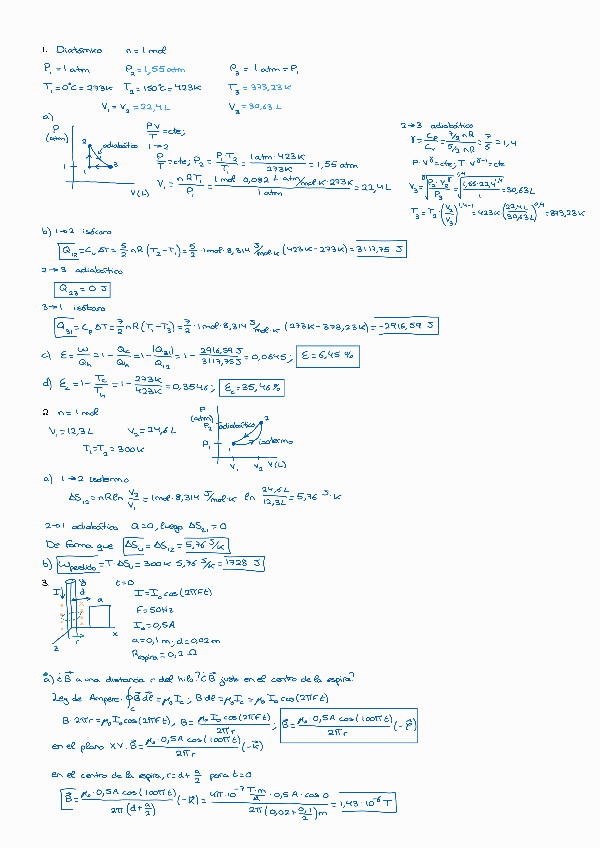 1. Diatómico n = 1 mol
P₁ = 1 atm P₂ = 1,55 atm P₃ = 1 atm = P₁
T₁ = 0°C = 273K T₂ = 150°C = 423K T₃ = 373,23K
V₁ = V₂ = 22,4 L V₃ = 30,63 L
a)
P (atm) 2 adiabático 1 1 3 V(L)
PV/T = cte; 1→2
P/T = cte; P₂ = P₁·T₂/T₁ = 1 atm·423K/273K = 1,55 atm
V₁ = nRT₁/P₁ = 1 mol·0,082 L·atm/mol·K·273K/1 atm = 22,4 L
2→3 adiabático
γ = Cp/Cv = 7/2 nR/5/2 nR = 7/5 = 1,4
P·V^γ = cte; T·V^γ-1 = cte
V₃ = ^γ√(P₂·V₂^γ/P₃) = ^1,4√(1,55·22,4^1,4/1) = 30,63L
T₃ = T₂·(V₂/V₃)^1,4-1 = 423K(22,4L/30,63L)^0,4 = 373,23K
b) 1→2 isócora
Q₁₂ = Cv ΔT = 5/2 nR (T₂-T₁) = 5/2·1mol·8,314 J/mol·K (423K-273K) = 3117,75 J
2→3 adiabático
Q₂₃ = 0 J
3→1 isóbara
Q₃₁ = Cp ΔT = 7/2 nR(T₁-T₃) = 7/2·1mol·8,314 J/mol·K (273K-373,23K) = -2916,59 J
c) ε = W/Qh = 1 - Qc/Qh = 1 - |Q₃₁|/Q₁₂ = 1 - 2916,59 J/3117,75 J = 0,0645; ε = 6,45 %
d) εc = 1 - Tc/Th = 1 - 273K/423K = 0,3546; εc = 35,46%
2. n = 1 mol
V₁ = 12,3L V₂ = 24,6L
T₁ = T₂ = 300K
P (atm) P₂ P₁ adiabático 2 1 isotermo V₁ V₂ V(L)
a) 1→2 isotermo
ΔS₁₂ = nR ln V₂/V₁ = 1mol·8,314 J/mol·K ln 24,6L/12,3L = 5,76 J·K
2→1 adiabático Q=0, luego ΔS₂₁ = 0
De forma que ΔSu = ΔS₁₂ = 5,76 J/K
b) Wperdido = T·ΔSu = 300K·5,76 J/K = 1728 J
3.
I y d a x z r
t=0
I = I₀ cos(2πFt)
F = 50Hz
I₀ = 0,5A
a = 0,1 m; d = 0,02m
Respira = 0,2 Ω
a) ¿B⃗ a una distancia r del hilo? ¿B⃗ justo en el centro de la espira?
Ley de Ampere: ∮c B⃗ dl⃗ = μ₀Ic; B dl = μ₀Ic = μ₀ I₀ cos(2πFt)
B·2πr = μ₀I₀cos(2πFt), B = μ₀ I₀ cos(2πFt)/2πr; B⃗ = μ₀·0,5A cos(100πt)/2πr (-k⃗)
en el plano XY: B⃗ = μ₀·0,5A cos(100πt)/2πr (-k⃗)
en el centro de la espira, r = d + a/2 para t = 0
B⃗ = μ₀·0,5A cos(100πt)/2π(d+a/2) (-k⃗) = 4π·10⁻⁷ T·m/A·0,5A·cos 0/2π(0,02+0,1/2)m = 1,43·10⁻⁶ T